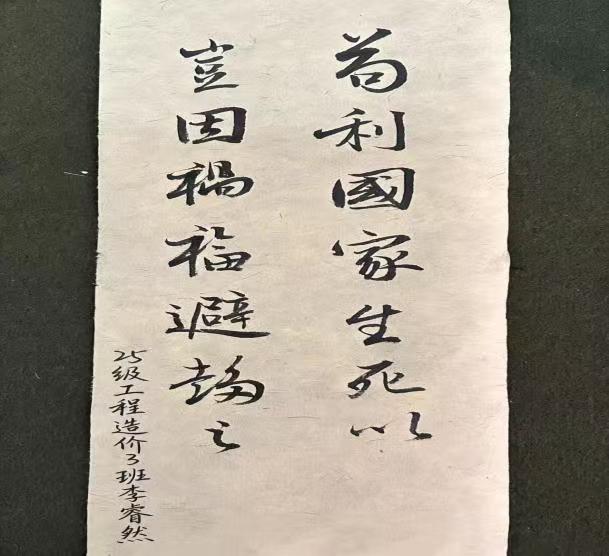 苟利國家生死以
豈因禍福避趨之
25级工程造价3班李睿然